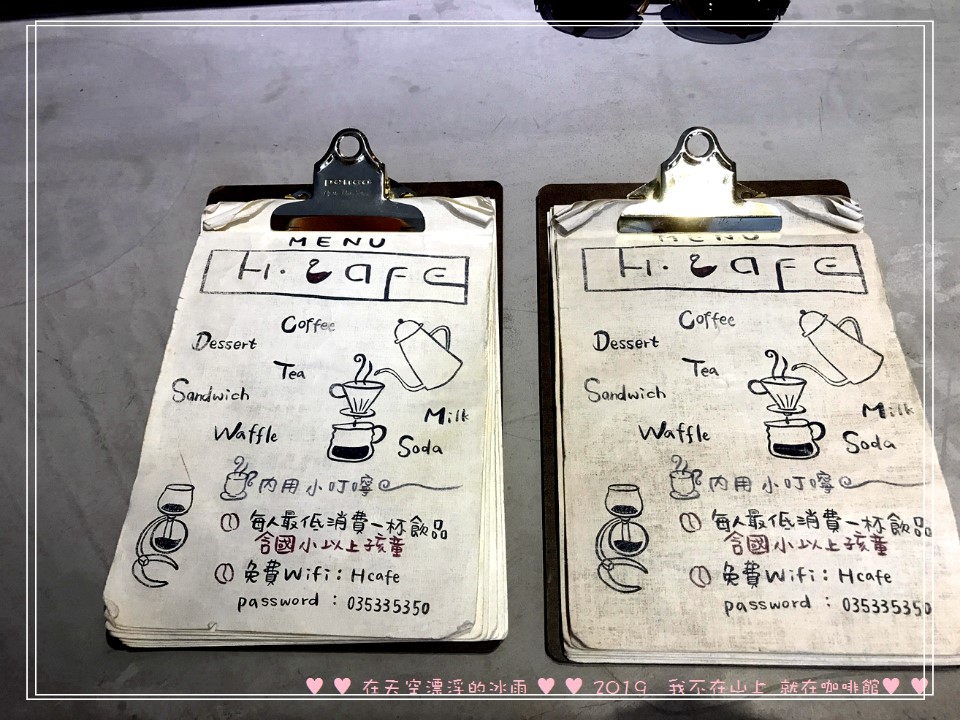 MENU
H. Cafe
Coffee
Dessert
Tea
Sandwich
Milk
Waffle
Soda
內用小叮嚀
每人最低消費一杯飲品
含國小以上孩童
免費Wifi：Hcafe
password：035335350
MENU
H. Cafe
Coffee
Dessert
Tea
Sandwich
Milk
Waffle
Soda
內用小叮嚀
每人最低消費一杯飲品
含國小以上孩童
免費Wifi：Hcafe
password：035335350
♥ ♥ 在天空漂浮的冰雨 ♥ ♥ 2019 我不在山上 就在咖啡館♥ ♥